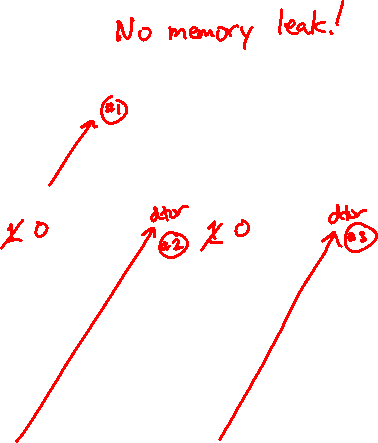 No memory leak!
#1
1 0 dtor 1 0 dtor
#2 #3